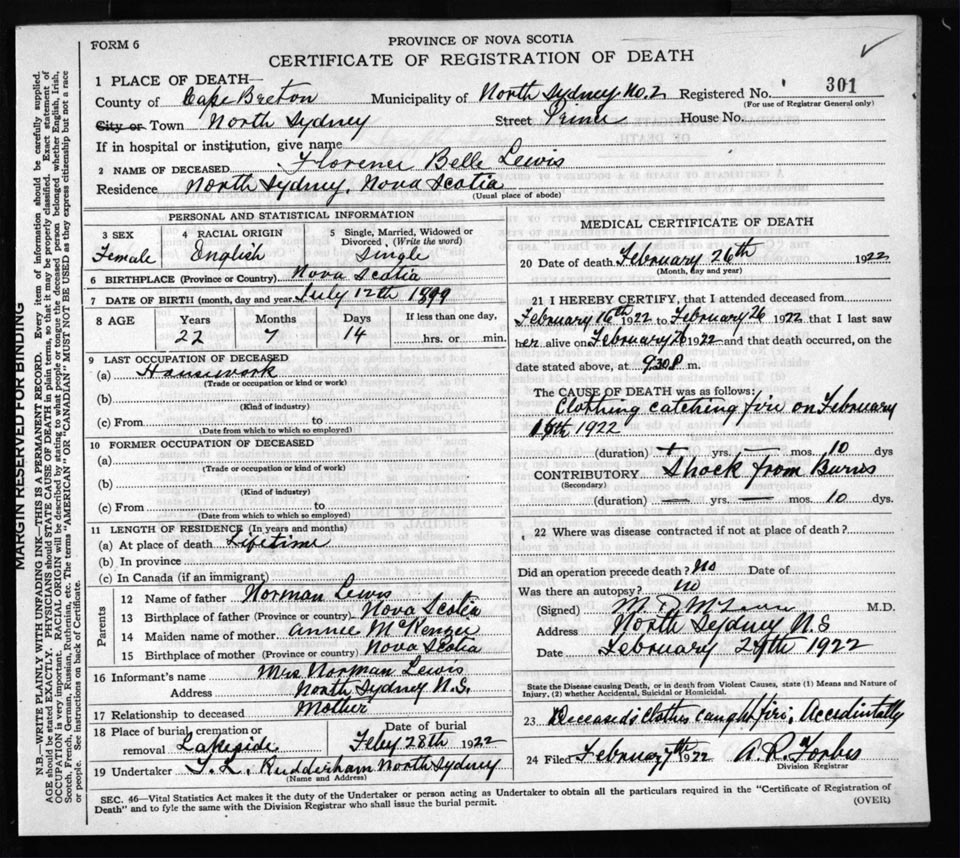 FORM 6
PROVINCE OF NOVA SCOTIA
CERTIFICATE OF REGISTRATION OF DEATH
1 PLACE OF DEATH—
County of Cape Breton Municipality of North Sydney No. 2 Registered No. 301
(For use of Registrar General only)
City or Town North Sydney Street Prince House No.
If in hospital or institution, give name
2 NAME OF DECEASED Florence Belle Lewis
Residence North Sydney, Nova Scotia
(Usual place of abode)
PERSONAL AND STATISTICAL INFORMATION
3 SEX 4 RACIAL ORIGIN 5 Single, Married, Widowed or Divorced, (Write the word)
Female English Single
6 BIRTHPLACE (Province or Country) Nova Scotia
7 DATE OF BIRTH (month, day and year) July 12th 1899
8 AGE Years Months Days If less than one day,
22 7 14 hrs. or min.
9 LAST OCCUPATION OF DECEASED
(a) Housework
(Trade or occupation or kind or work)
(b)
(Kind of industry)
(c) From to
(Date from which to which so employed)
10 FORMER OCCUPATION OF DECEASED
(a)
(Trade or occupation or kind of work)
(b)
(Kind of industry)
(c) From to
(Date from which to which so employed)
11 LENGTH OF RESIDENCE (In years and months)
(a) At place of death Lifetime
(b) In province
(c) In Canada (if an immigrant)
Parents
12 Name of father Norman Lewis
13 Birthplace of father (Province or country) Nova Scotia
14 Maiden name of mother Annie McKenzie
15 Birthplace of mother (Province or country) Nova Scotia
16 Informant's name Mrs Norman Lewis
Address North Sydney N.S.
17 Relationship to deceased Mother
18 Place of burial, cremation or removal Lakeside Date of burial Feby. 28th 1922
19 Undertaker T. L. Rudderham North Sydney
(Name and Address)
MEDICAL CERTIFICATE OF DEATH
20 Date of death February 26th 1922
(Month, day and year)
21 I HEREBY CERTIFY, that I attended deceased from
February 16th 1922 to February 26 1922 that I last saw
her alive on February 26 1922 and that death occurred, on the
date stated above, at 9.30 P m.
The CAUSE OF DEATH was as follows:
Clothing catching fire on February
1922
(duration) yrs. — mos. 10 dys
CONTRIBUTORY Shock from Burns
(Secondary)
(duration) — yrs. — mos. 10 dys.
22 Where was disease contracted if not at place of death?
Did an operation precede death? No Date of
Was there an autopsy? No
(Signed) M.D.
Address North Sydney N.S
Date February 29th 1922
State the Disease causing Death, or in death from Violent Causes, state (1) Means and Nature of Injury, (2) whether Accidental, Suicidal or Homicidal.
23 Deceased's Clothes caught fire, Accidintally
24 Filed February 1922 A. R. Forbes
Division Registrar
SEC. 46—Vital Statistics Act makes it duty of the Undertaker or person acting as Undertaker to obtain all the particulars required in the "Certificate of Registration of
Death" and to fyle the same with the Division Registrar who shall issue the burial permit.
(OVER)
MARGIN RESERVED FOR BINDING
N.B.—WRITE PLAINLY WITH UNFADING INK—THIS IS A PERMANENT RECORD. Every item of information should be carefully supplied.
AGE should be stated EXACTLY. PHYSICIANS should STATE CAUSE OF DEATH in plain terms, so that it may be properly classified. Exact statement of
OCCUPATION is very important. RACIAL ORIGIN will be described by stating to what people or tongue the deceased person belonged whether English, Irish,
Scotch, French, German, Russian, Ruthenian, etc. The terms "AMERICAN" or "CANADIAN" MUST NOT BE USED as they express citizenship but not a race
or people. See instructions on back of Certificate.